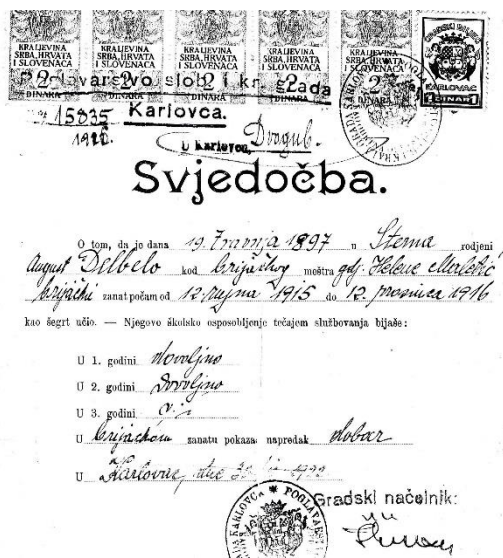 KRALJEVINA SRBA, HRVATA I SLOVENACA KRALJEVINA SRBA, HRVATA I SLOVENACA KRALJEVINA SRBA, HRVATA I SLOVENACA KRALJEVINA SRBA, HRVATA I SLOVENACA KRALJEVINA SRBA, HRVATA I SLOVENACA
2 2 2 2
DINARA DINARA DINARA DINARA DINARA
KARLOVAC
1 DINAR 1
Poglavarstvo slob. i kr. grada
Karlovca.
15835
1922.
U Karlovcu,
Svjedočba.
O tom, da je dana 19. Travnja 1897 u Sterna rodjeni
August Delbelo kod brijačkog meštra gdj. Helene
brijački zanat počam od 12. rujna 1915 do 12. prosinca 1916
kao šegrt učio. — Njegovo školsko osposobljenje tečajem službovanja bijaše:
U 1. godini dovoljno
U 2. godini Dovoljno
U 3. godini
U brijačkom zanatu pokaza napredak dobar
U Karlovac, dne
Gradski načelnik: